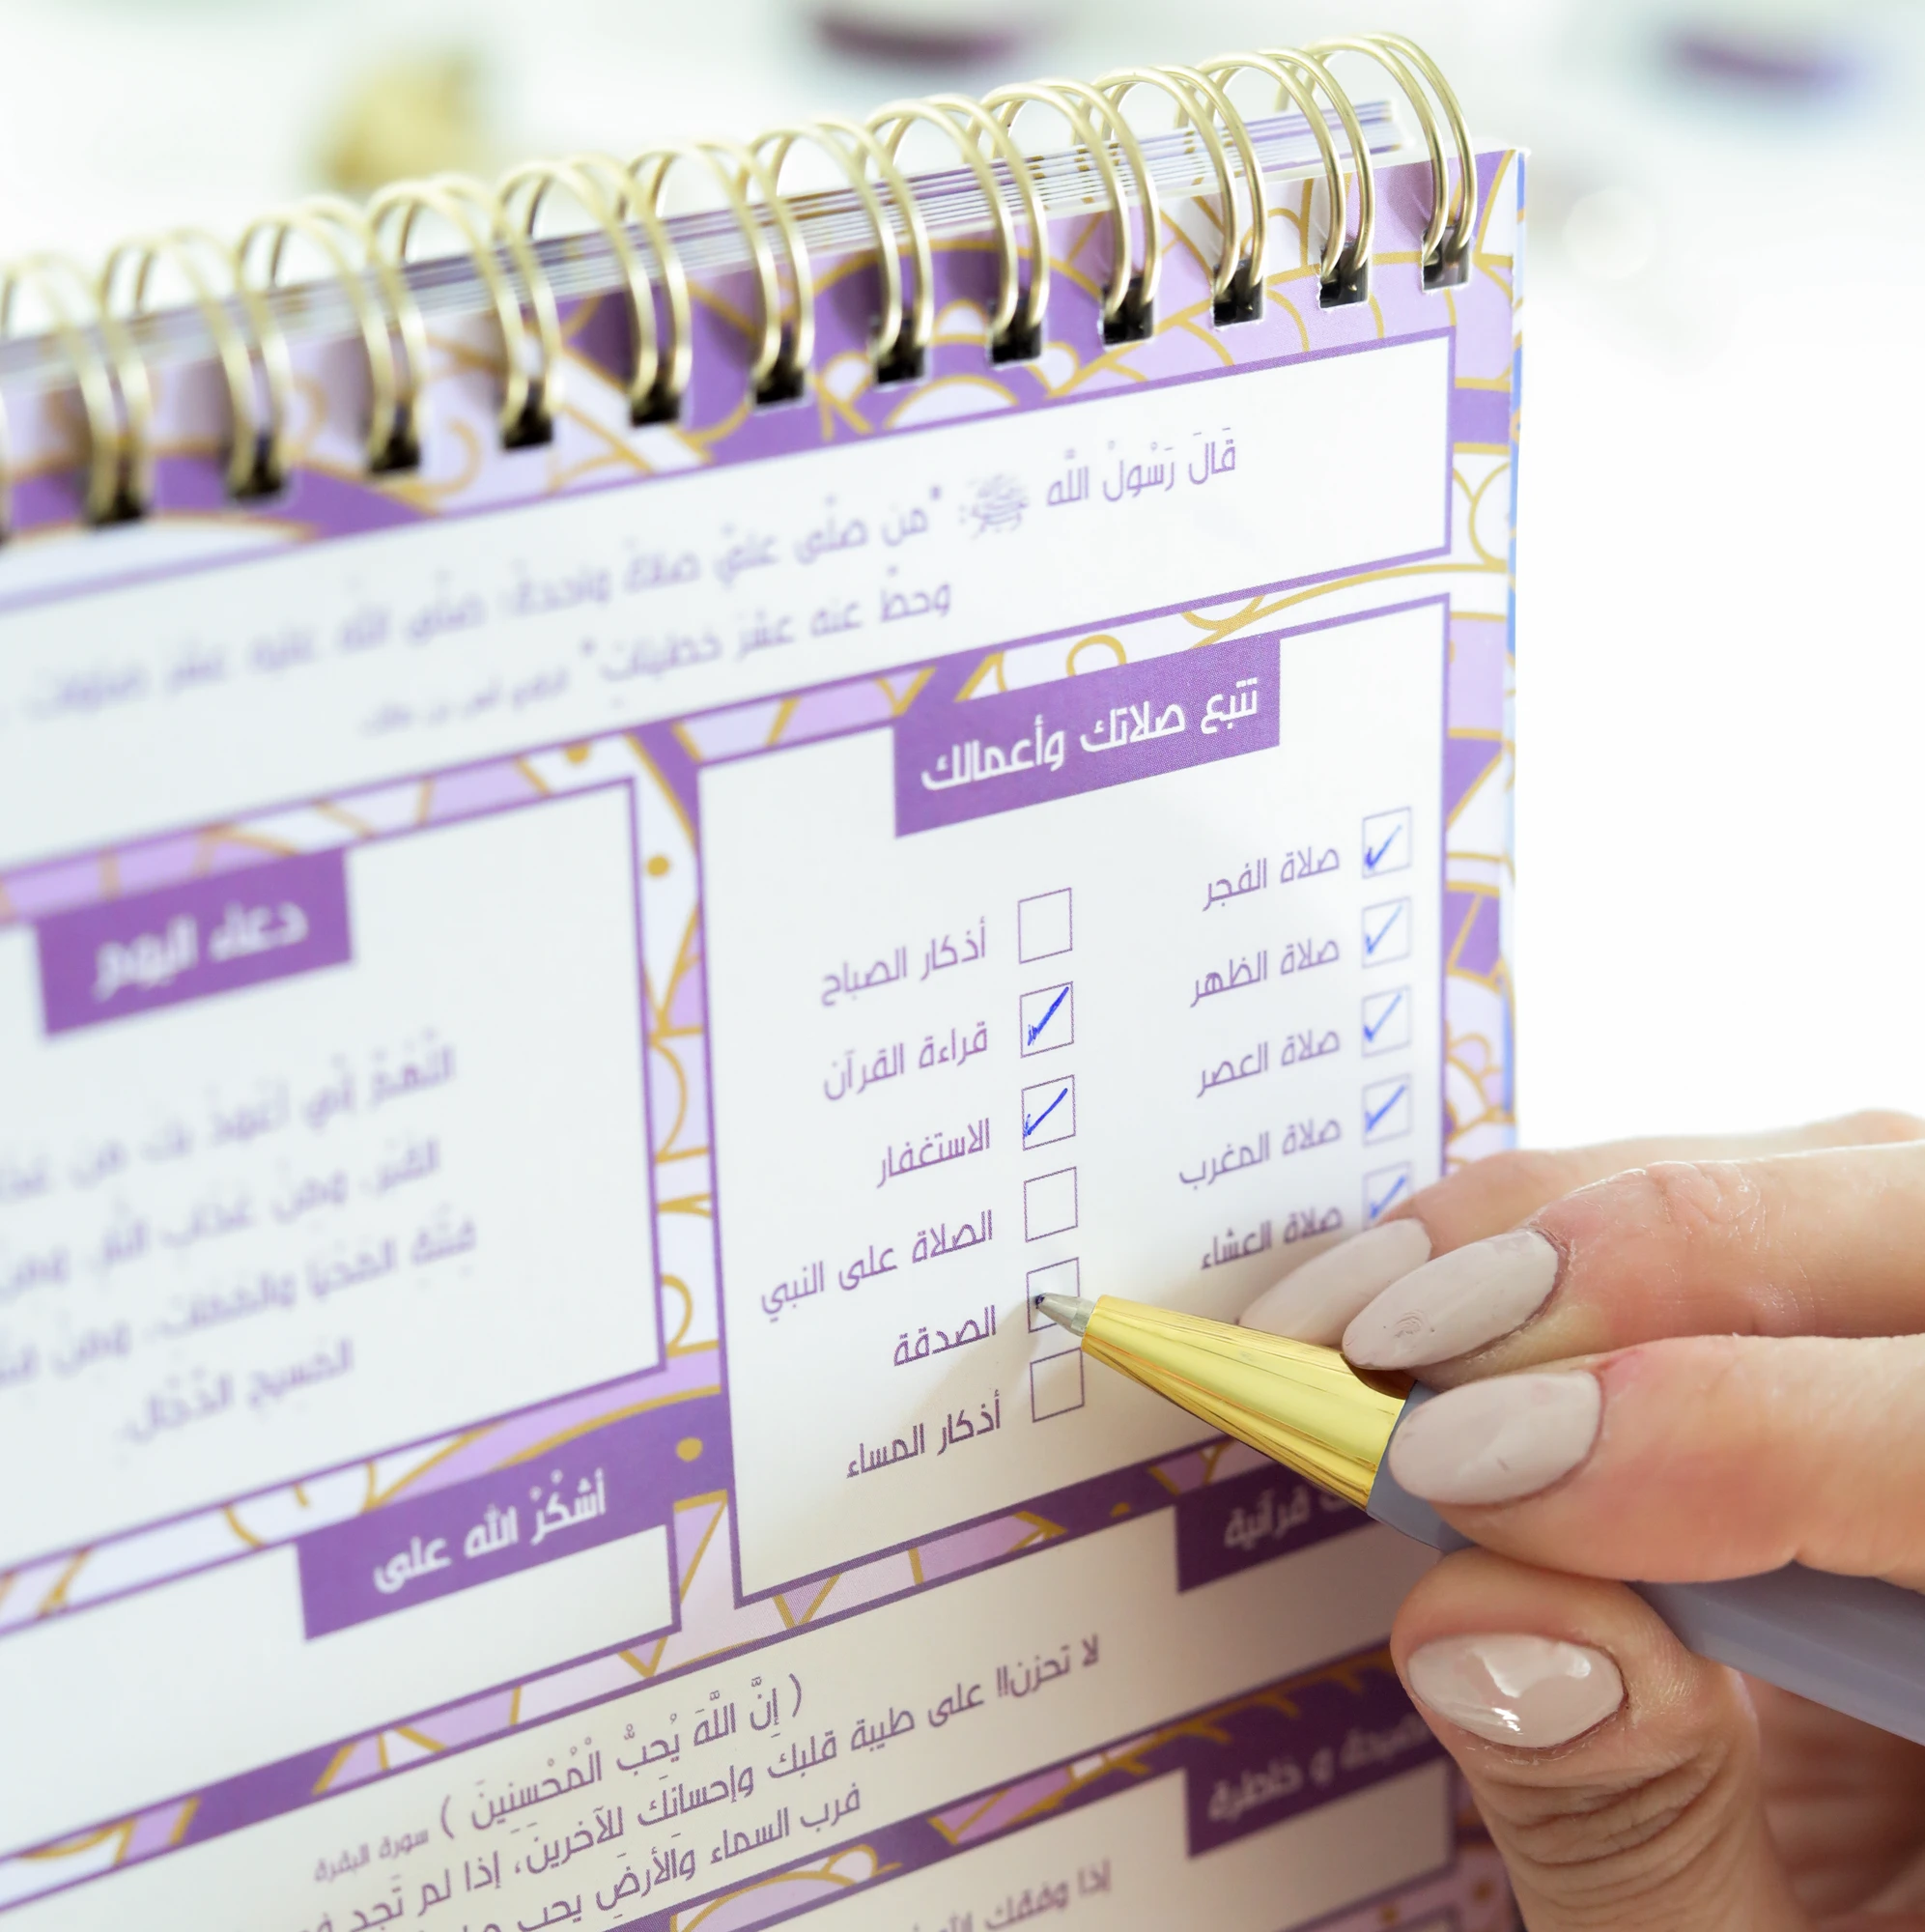 قَالَ رَسُولُ اللَّه ﷺ: "من صلَّى عليَّ صلاةً واحدةً؛ صلَّى اللَّه عليه عشرَ صلواتٍ
وحطَّ عنه عشرَ خطيئاتٍ"
تتبع صلاتك وأعمالك
صلاة الفجر
صلاة الظهر
صلاة العصر
صلاة المغرب
صلاة العشاء
أذكار الصباح
قراءة القرآن
الاستغفار
الصلاة على النبي
الصدقة
أذكار المساء
دعاء اليوم
اللَّهُمَّ إنِّي أعُوذُ بكَ مِن
القَبْرِ، ومِنْ عَذَابِ النَّارِ، ومِن
فِتْنَةِ المَحْيَا والمَمَاتِ، ومِنْ
المَسِيحِ الدَّجَّالِ.
أشكُرْ الله على
قرآنية
( إِنَّ اللَّهَ يُحِبُّ الْمُحْسِنِينَ ) سورة البقرة
لا تحزن!! على طيبة قلبك وإحسانك للآخرين، إذا لم تجد
فرب السماء والأرض يحب
و خاطرة
إذا وفقك